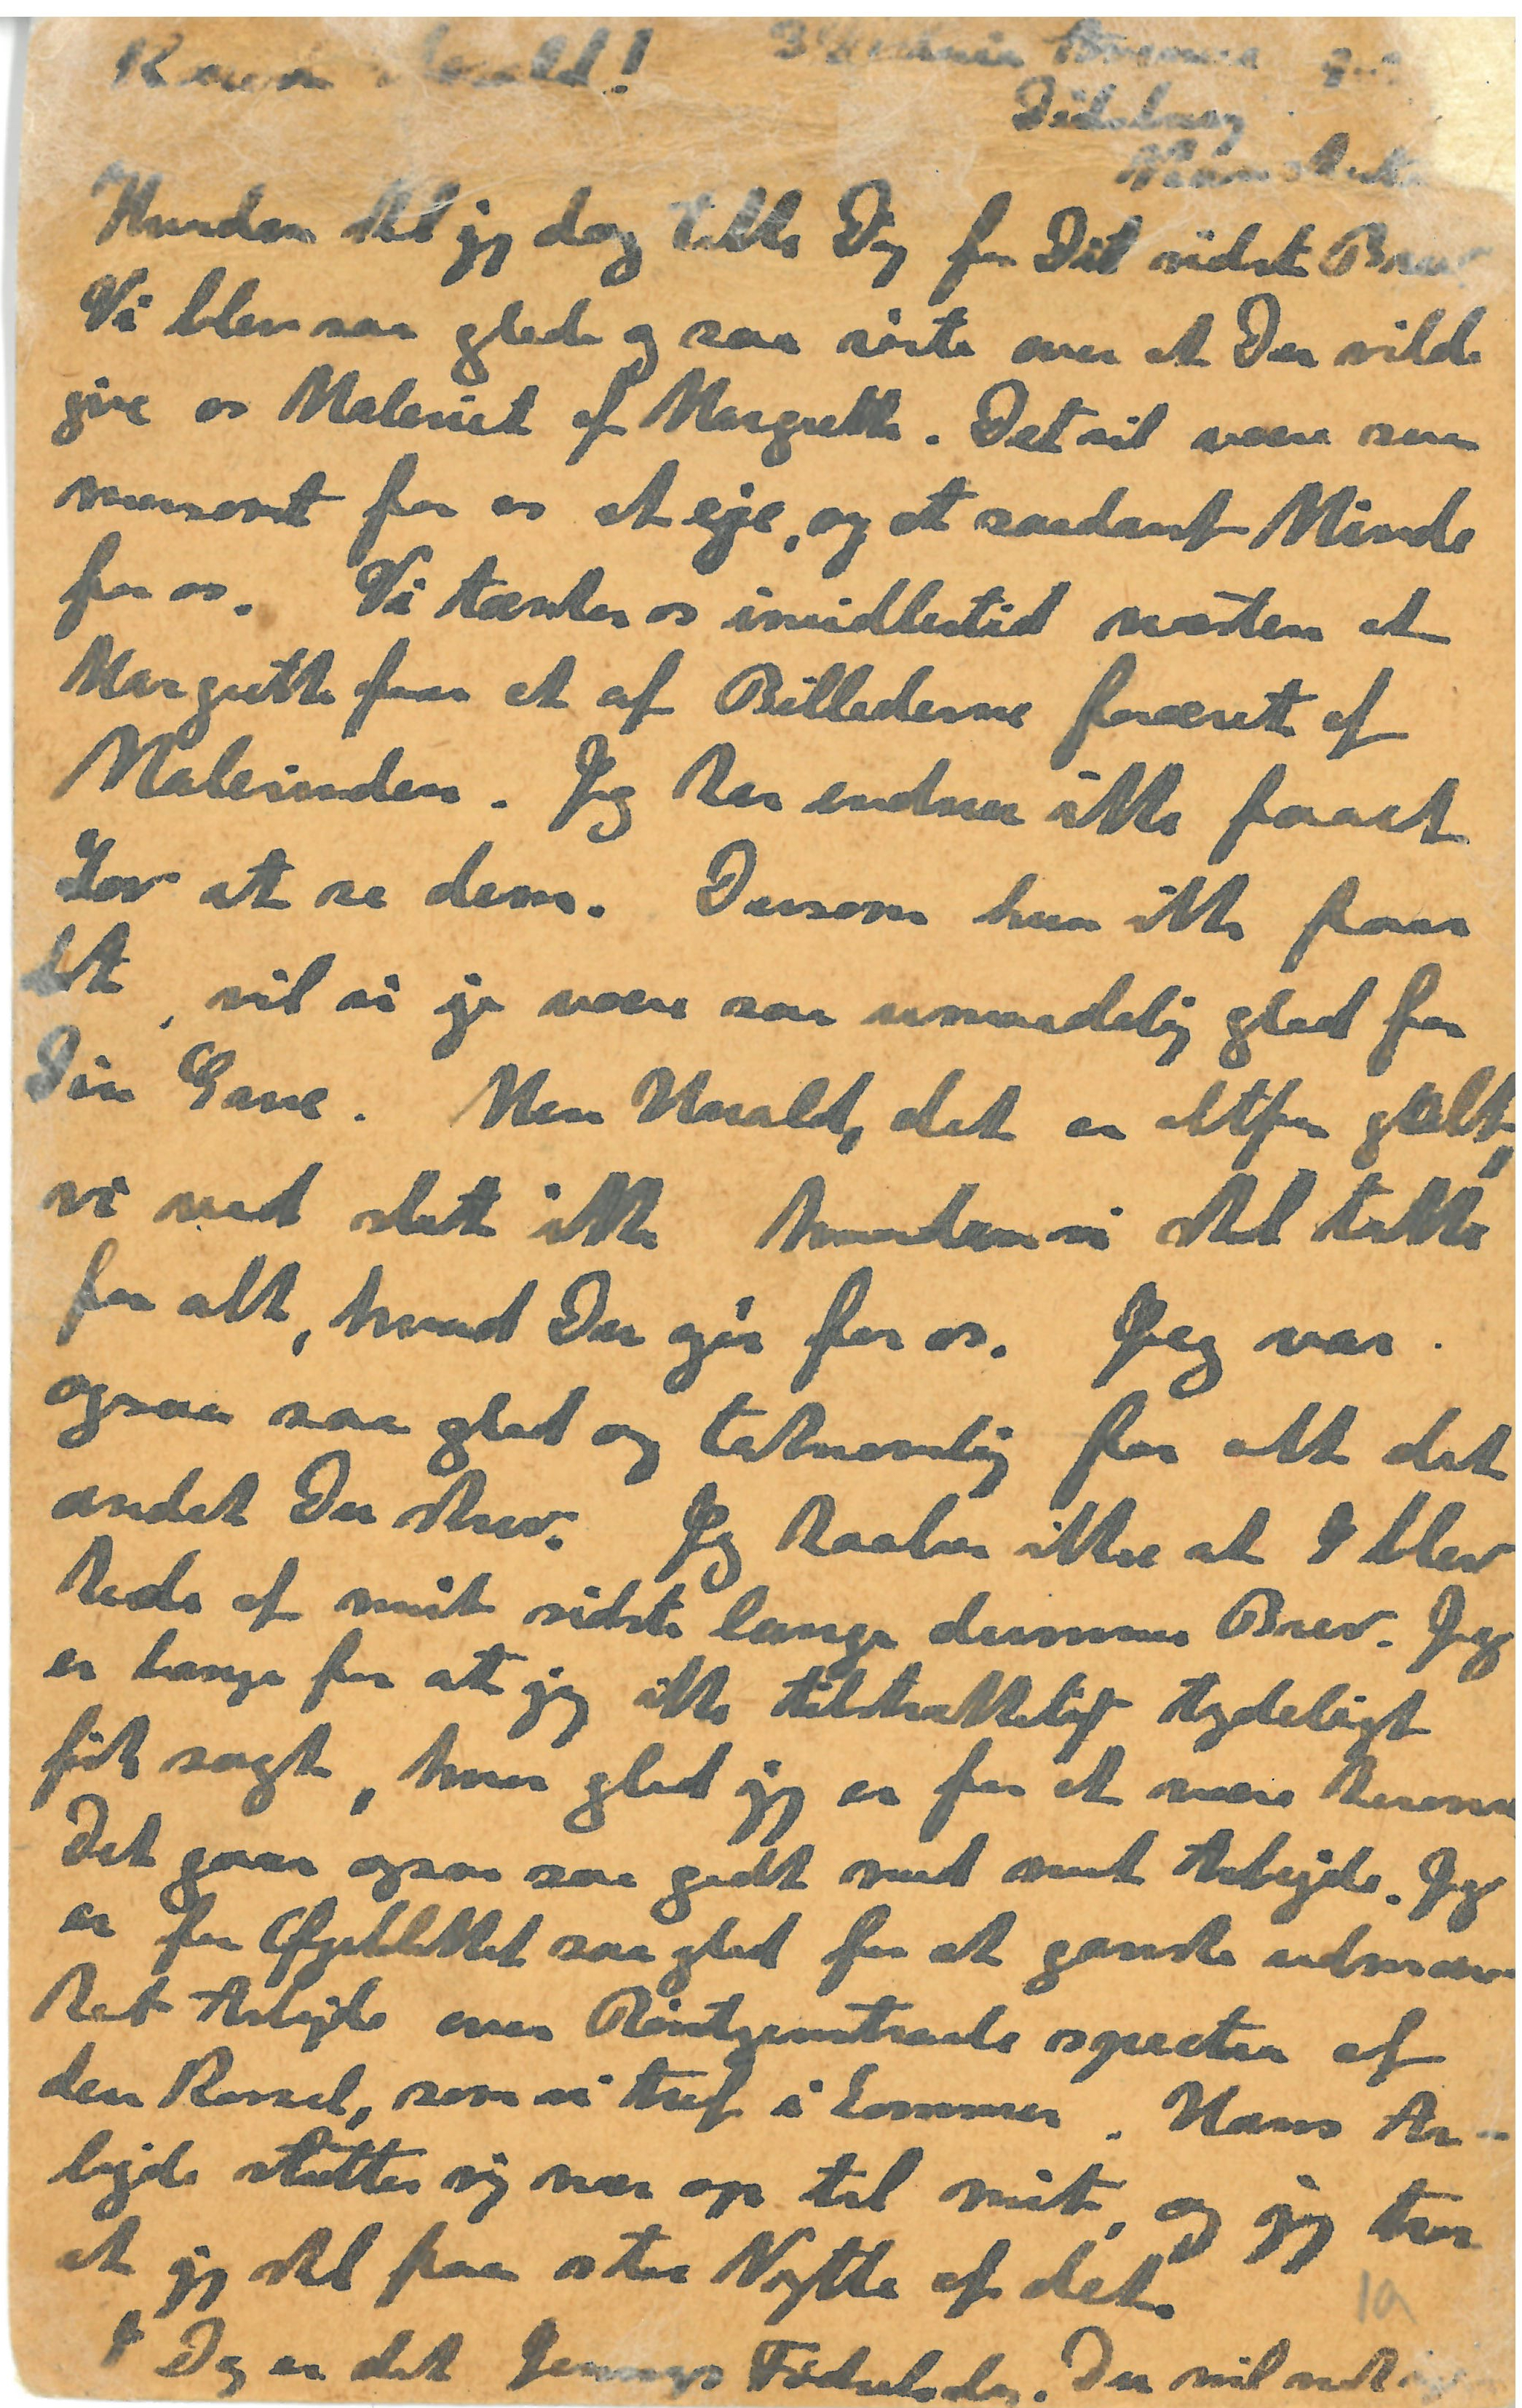 Kære Harald!
Didsbury
Manchester
Hvordan skal jeg dog takke Dig for Dit sidste Brev
Vi blev saa glade og saa rørte over at Du vilde
give os Maleriet af Margrethe. Det vil være saa
morsomt for os at eje, og et saadant Minde
for os. Vi tænker os imidlertid næsten at
Margrethe faar et af Billederne foræret af
Malerinden. Jeg har endnu ikke faaet
Lov at se dem. Dersom hun ikke faar
det, vil vi jo være saa umaadelig glad for
Din Gave. Men Harald, det er altfor galt,
vi ved slet ikke hvordan vi skal takke
for alt, hvad Du gør for os. Jeg var
ogsaa saa glad og taknemlig for alt det
andet Du skrev. Jeg haaber ikke at I blev
kede af mit sidste lange dumme Brev. Jeg
er bange for at jeg ikke tilstrækkeligt tydeligt
fik sagt, hvor glad jeg er for at være herovre
Det gaar ogsaa saa godt med mit Arbejde. Jeg
er for Øjeblikket saa glad for et ganske udmær-
ket Arbejde over Röntgenstraale spectra af
den Kossel, som vi traf i Sommer. Hans Ar-
bejde slutter sig nær op til mit, og jeg tror
at jeg skal faa stor Nytte af det.
I Dag er det Jennys Fødselsdag. Du vil nok
1a